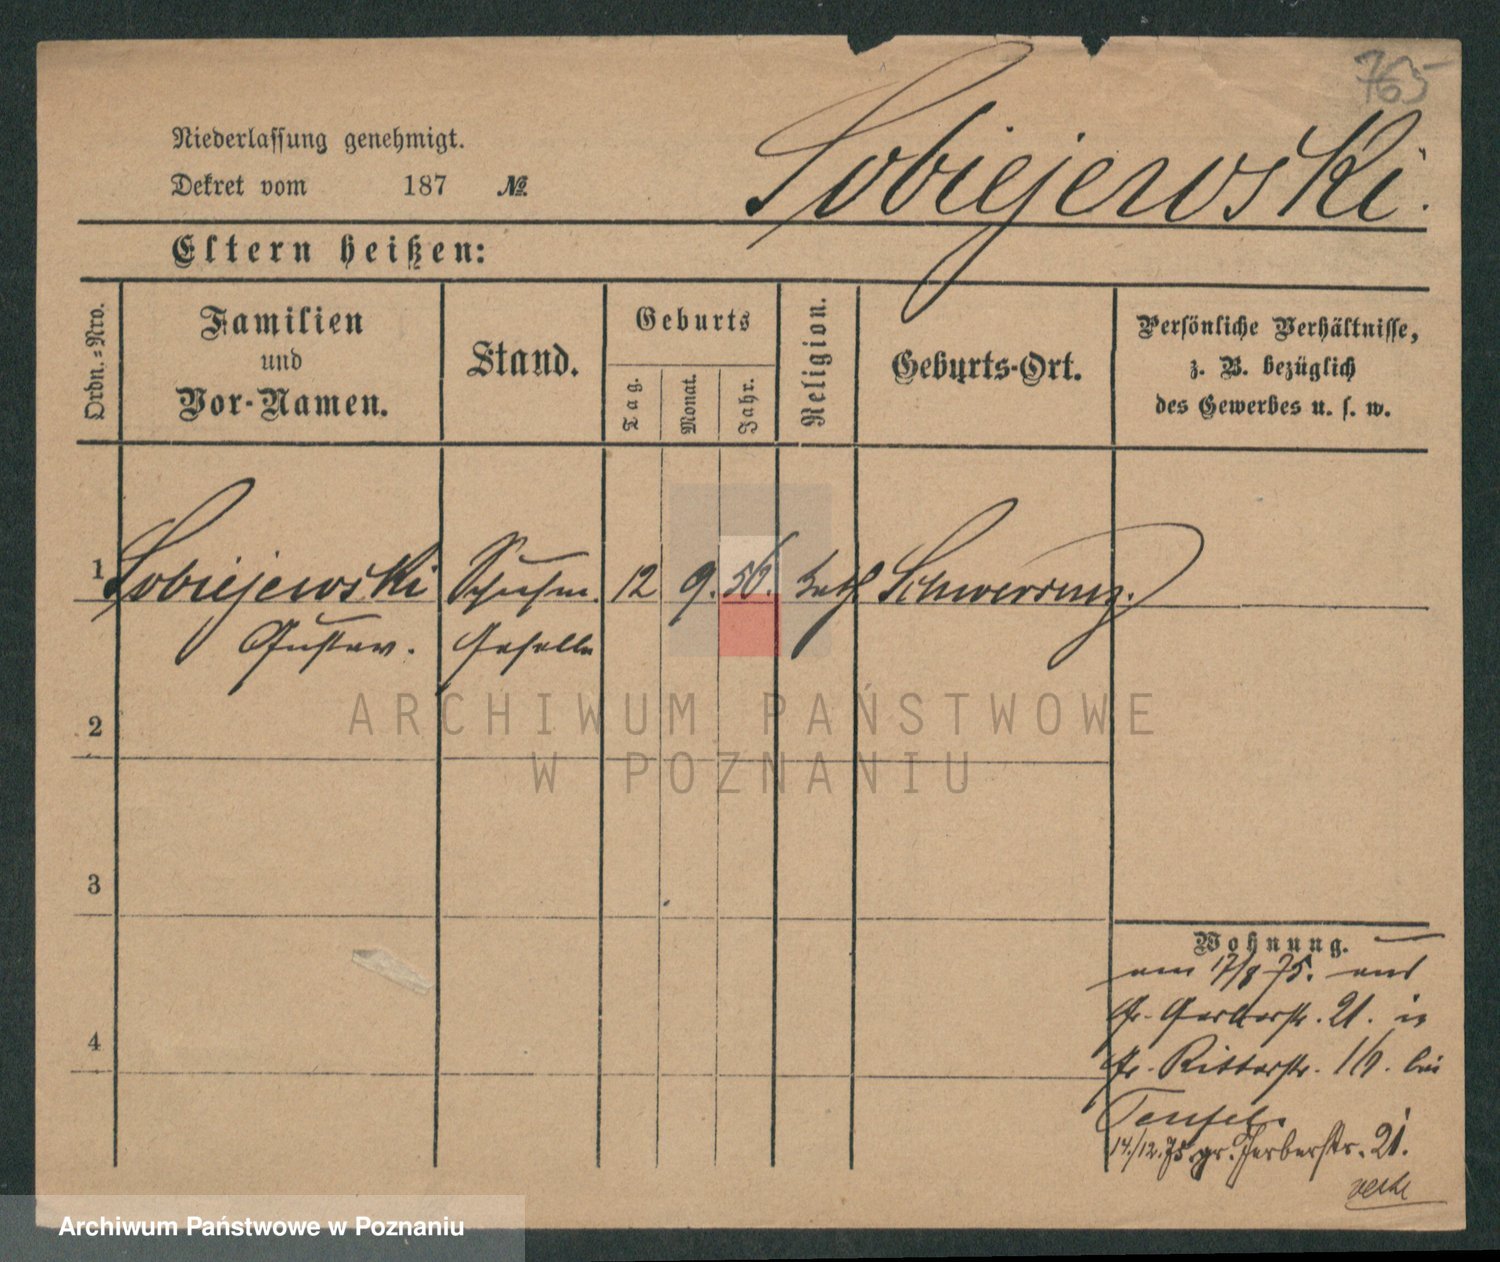 765
Niederlassung genehmigt.
Dekret vom 187 №
Sobiejewski.
Eltern heißen:
Ordn.=Nro.
Familien
und
Vor-Namen.
Stand.
Geburts
Tag.
Monat.
Jahr.
Religion.
Geburts-Ort.
Persönliche Verhältnisse,
z. B. bezüglich
des Gewerbes u. s. w.
1 Sobiejewski Schuhm. 12 9. 56. kath Schwersenz.
Gustav. Geselle
2
3
4
ARCHIWUM PAŃSTWOWE
W POZNANIU
Wohnung.
am 17/8 75. aus
Gr. Gerberstr. 21. in
Gr. Ritterstr. bei
Teufel.
14./12.75 gr. Gerberstr. 21.
Archiwum Państwowe w Poznaniu